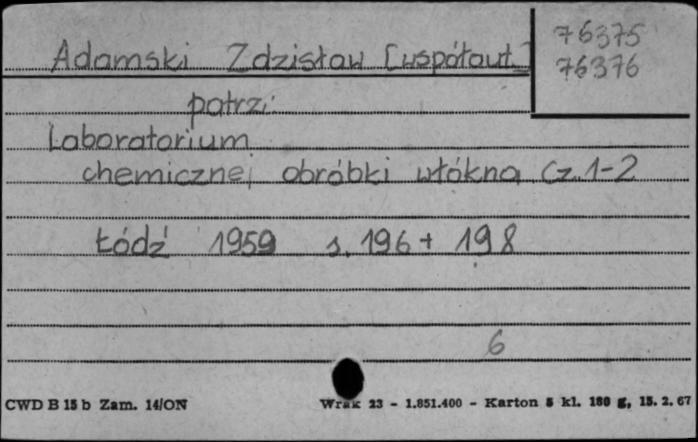 Adamski Zdzisław [współaut.]
76375
76376
patrz:
Laboratorium
chemicznej obróbki włókna Cz. 1-2
Łódź 1959 s. 196 + 198
6
CWD B 15 b Zam. 14/ON Wrak 23 - 1.851.400 - Karton 5 kl. 180 g, 15. 2. 67